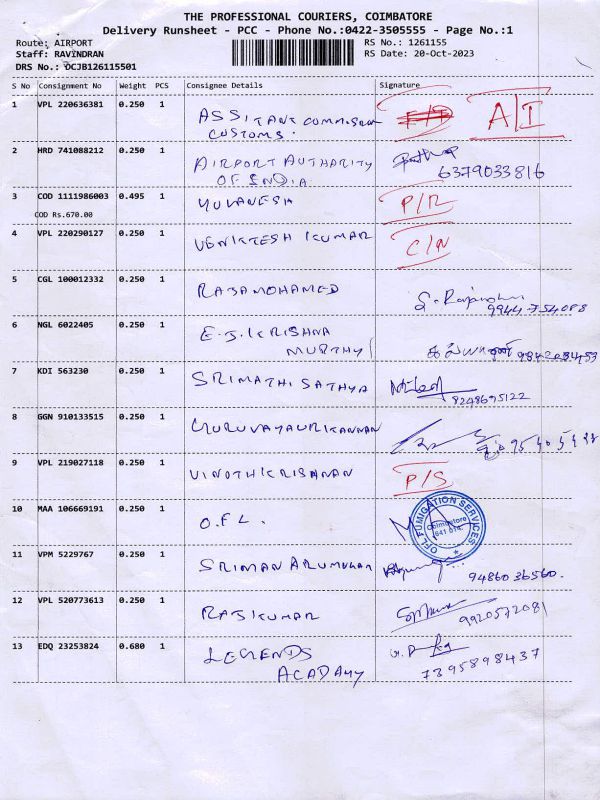 THE PROFESSIONAL COURIERS, COIMBATORE
Delivery Runsheet - PCC - Phone No.:0422-3505555 - Page No.:1
Route: AIRPORT
RS No.: 1261155
Staff: RAVINDRAN
RS Date: 20-Oct-2023
DRS No.: OCJB126115501
S No Consignment No Weight PCS Consignee Details Signature
1 VPL 220636381 0.250 1 ASSITANT COMMISSION A/I
CUSTOMS.
2 HRD 741088212 0.250 1 AIRPORT AUTHARITY
OF INDIA 6379033816
3 COD 1111986003 0.495 1 YUVANESH P/R
COD Rs.670.00
4 VPL 220290127 0.250 1 VENKTESH KUMAR C/N
5 CGL 100012332 0.250 1 RAJAMOHAMED
9944754088
6 NGL 6022405 0.250 1 E.J.KRISHNA
MURTHY 9842084453
7 KDI 563230 0.250 1 SRIMATHI SATHYA
8248695122
8 GGN 910133515 0.250 1 GURUVAYAURKANNAN
9 VPL 219027118 0.250 1 VINOTHKRISHNAN P/S
10 MAA 106669191 0.250 1 O.F.L.
OFL FUMIGATION SERVICES
Coimbatore
641 014.
11 VPM 5229767 0.250 1 SRIMAN ARUMUGAM
9486036560.
12 VPL 520773613 0.250 1 RAJKUMAR
9920572081
13 EDQ 23253824 0.680 1 LEGENDS
ACADAMY 7395898437